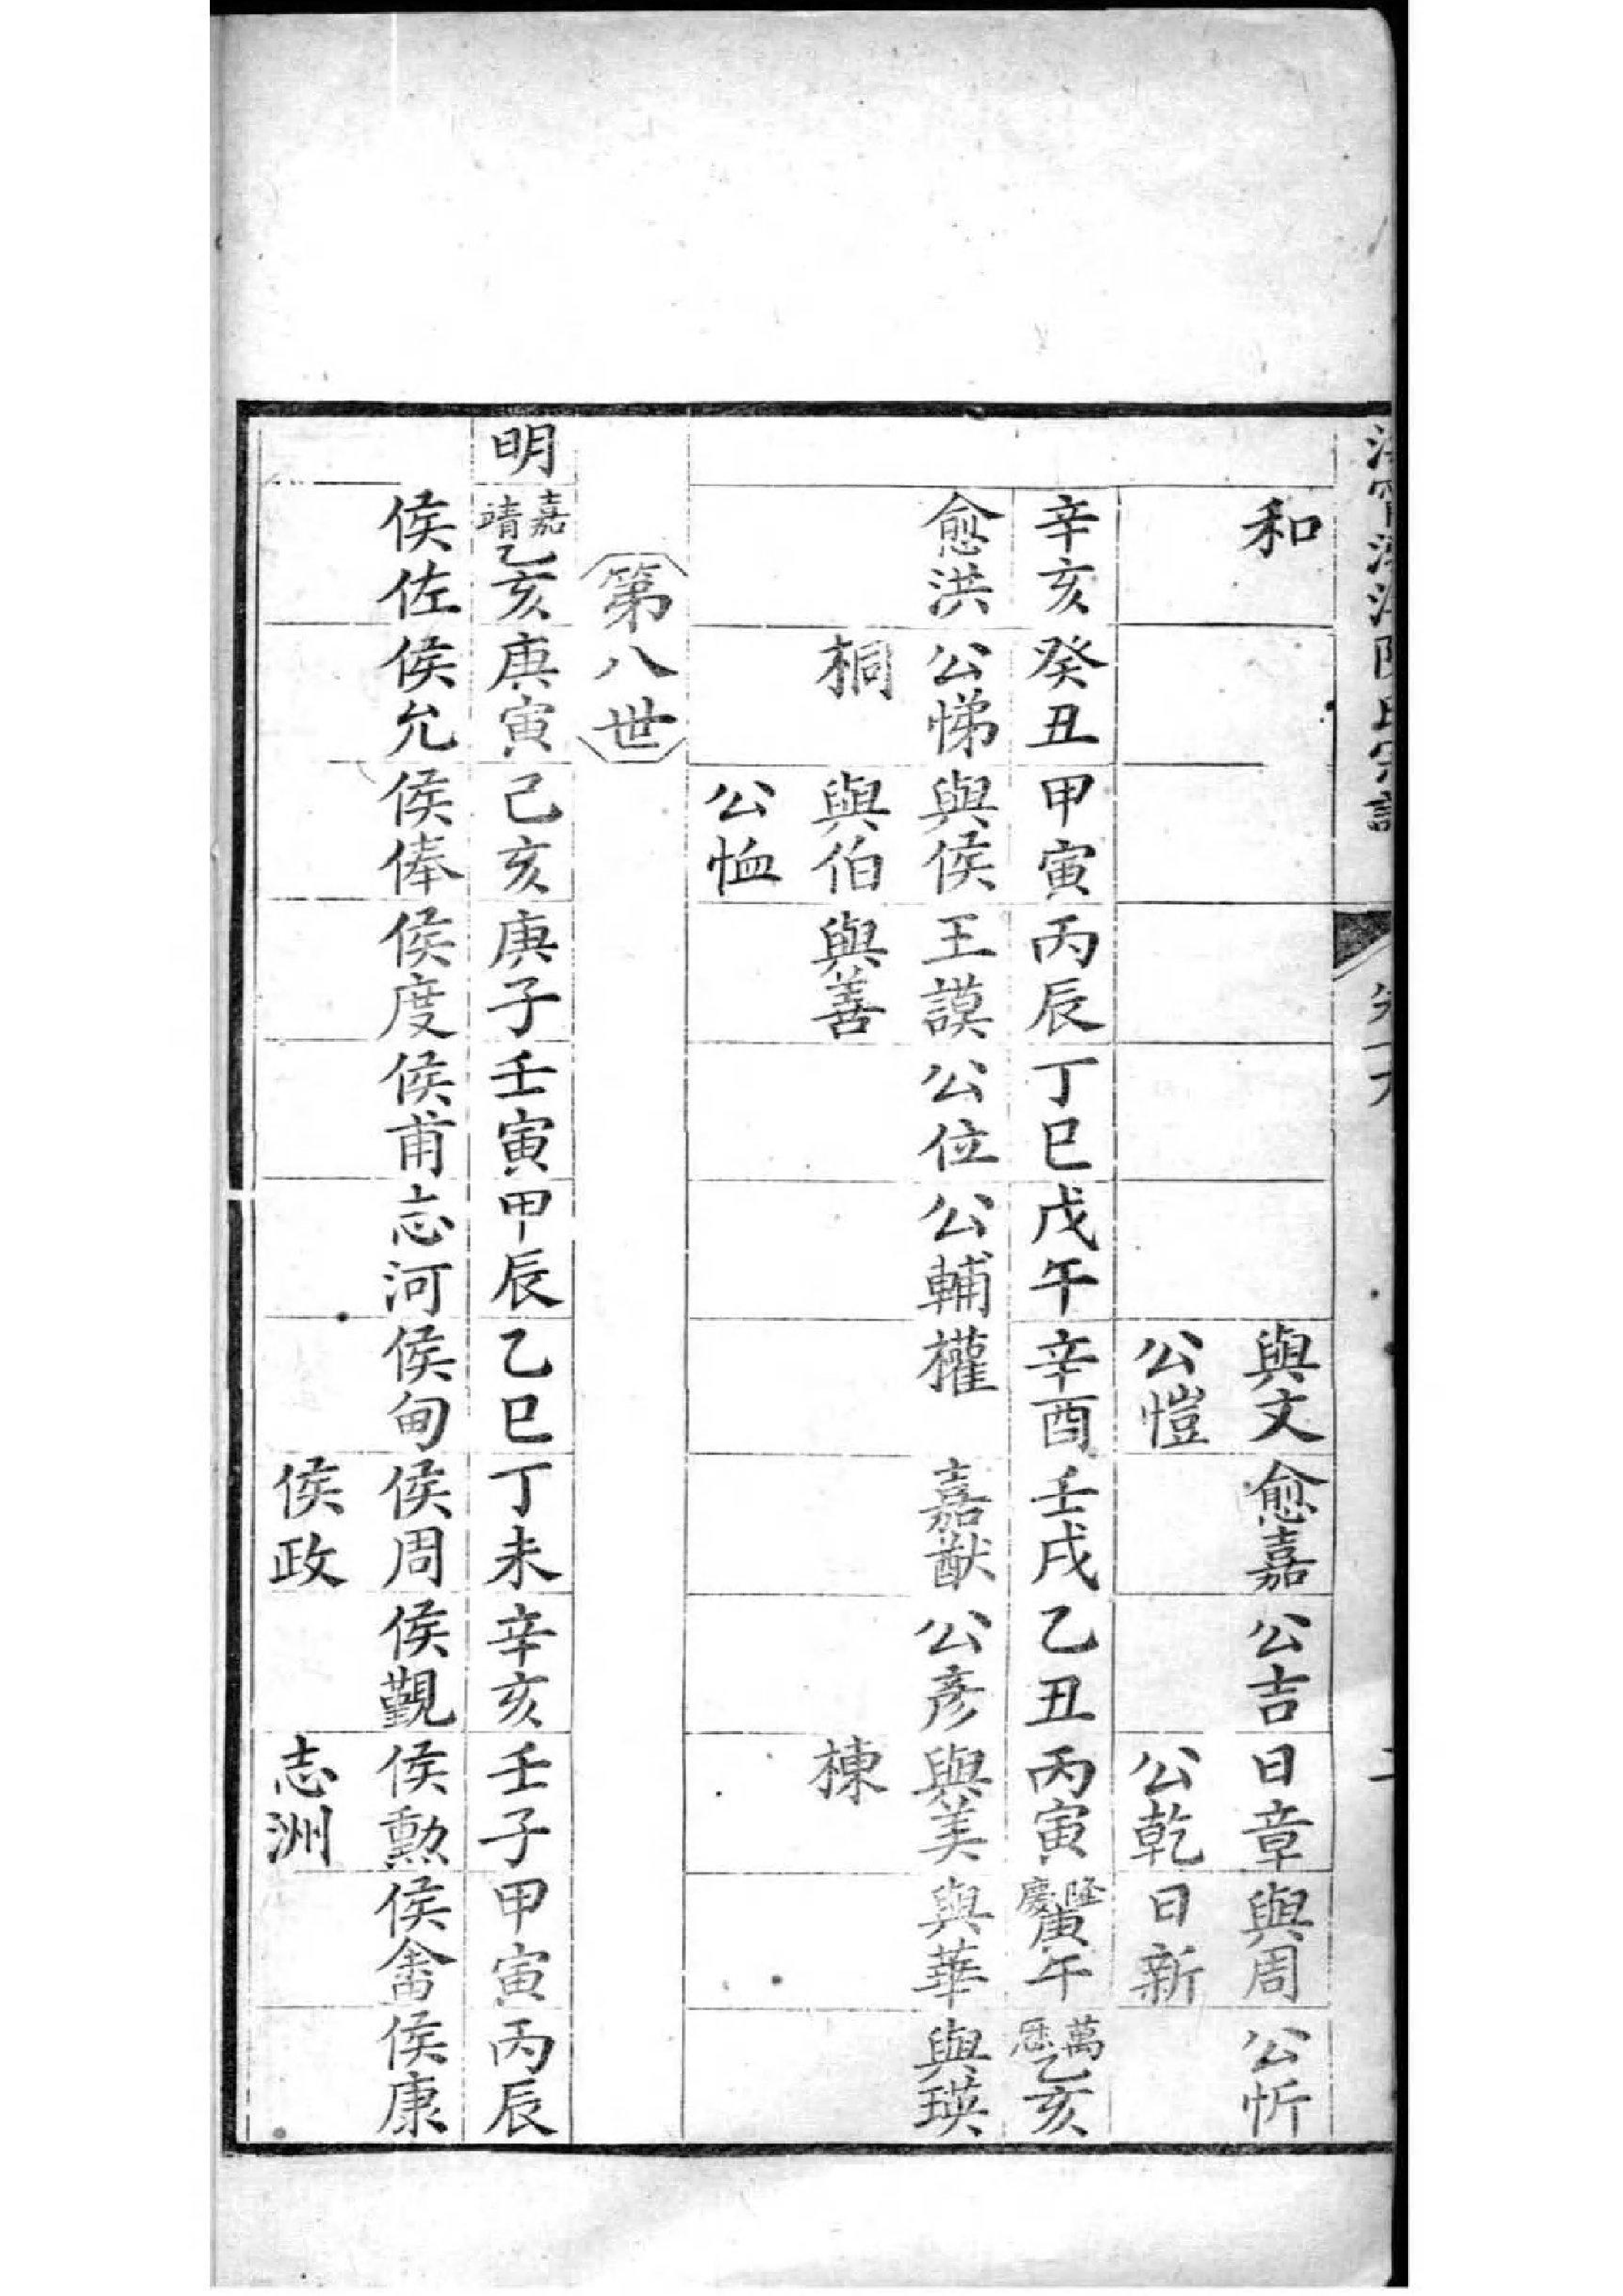 和　與文　愈嘉　公吉　日章　與周　公忻
公愷　公乾　日新
辛亥　癸丑　甲寅　丙辰　丁巳　戊午　辛酉　壬戌　乙丑　丙寅　隆慶庚午　萬厯乙亥
愈洪　公悌　與侯　王謨　公位　公輔　權　嘉猷　公彥　與美　與華　與瑛
桐　與伯　與善　棟
公恤
第八世
明　嘉靖乙亥　庚寅　己亥　庚子　壬寅　甲辰　乙巳　丁未　辛亥　壬子　甲寅　丙辰
侯佐　侯允　侯俸　侯度　侯甫　志河　侯甸　侯周　侯觀　侯勳　侯畬　侯康
侯政　志洲